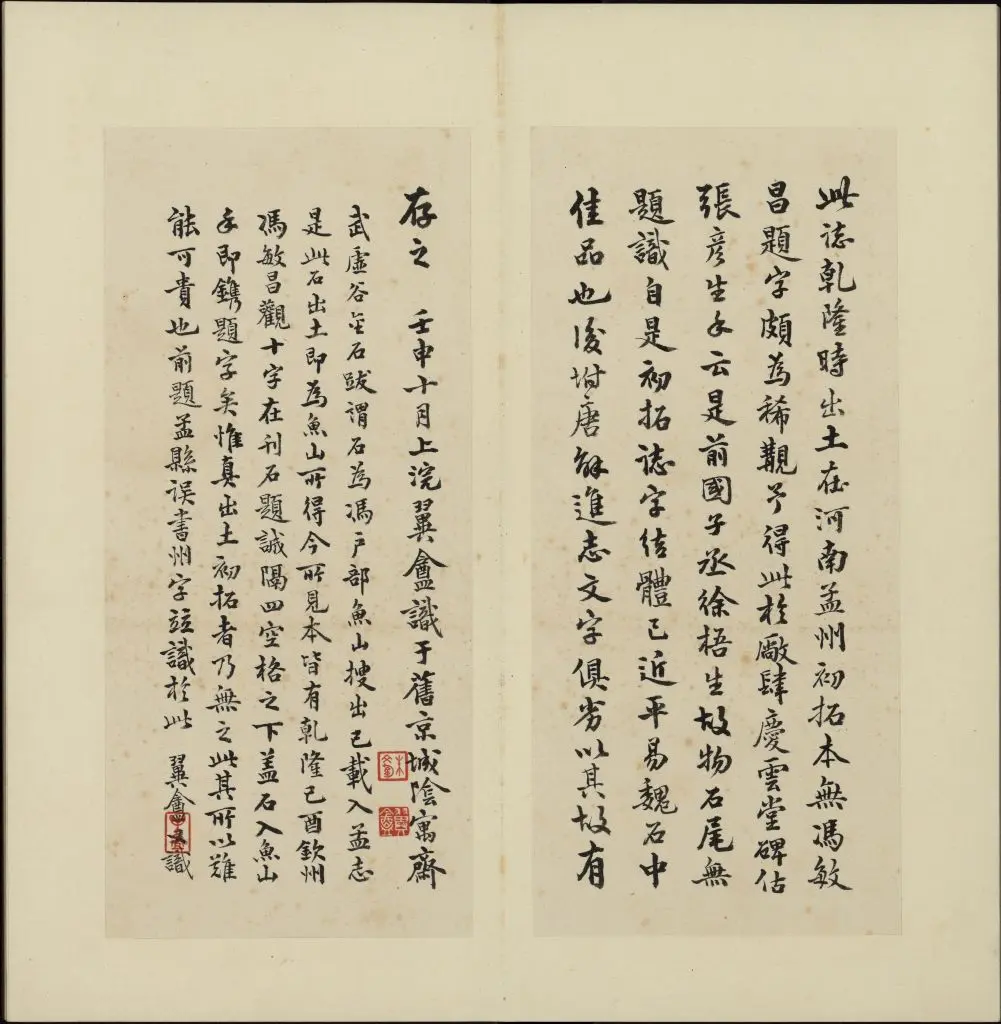 此誌乾隆時出土在河南孟州初拓本無馮敏
昌題字頗為稀覯予得此於廠肆慶雲堂碑估
張彥生手云是前國子丞徐梧生故物石尾無
題識自是初拓誌字結體已近平易魏石中
佳品也後坿唐解進志文字俱劣以其故有
存之　壬申十月上浣翼盦識于舊京城陰寓齋
武虛谷金石跋謂石為馮戶部魚山搜出已載入孟志
是此石出土即為魚山所得今所見本皆有乾隆己酉欽州
馮敏昌觀十字在刊石題誠隔四空格之下蓋石入魚山
手即鐫題字矣惟真出土初拓者乃無之此其所以難
能可貴也前題孟縣誤書州字竝識於此　翼盦又識